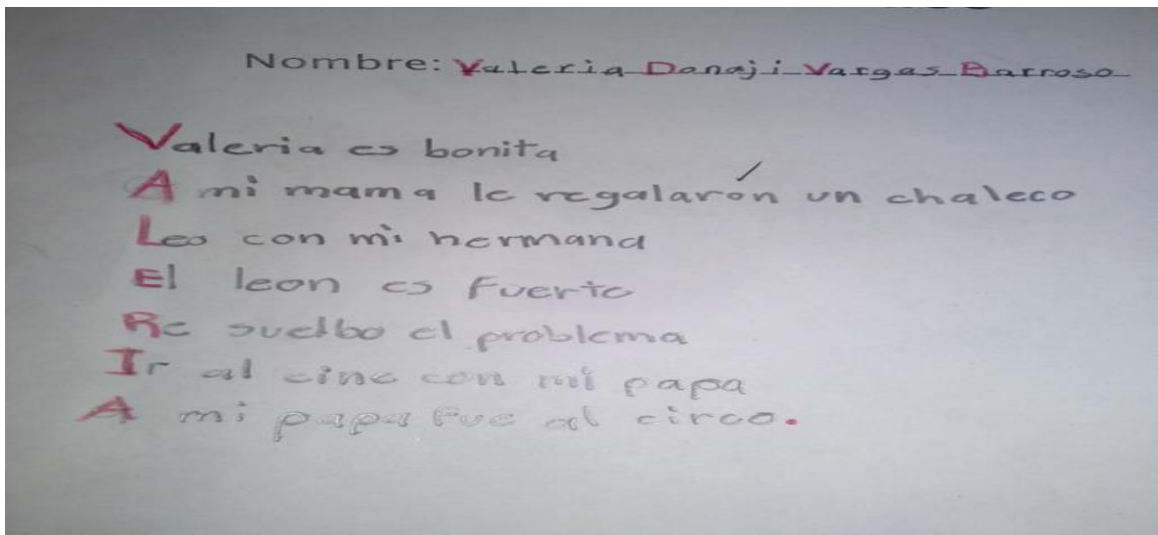 Nombre: Valeria Danaji Vargas Barroso
Valeria es bonita
A mi mama le regalarón un chaleco
Leo con mi hermana
El leon es fuerte
Re suelbo el problema
Ir al cine con mi papa
A mi papa fue al circo.